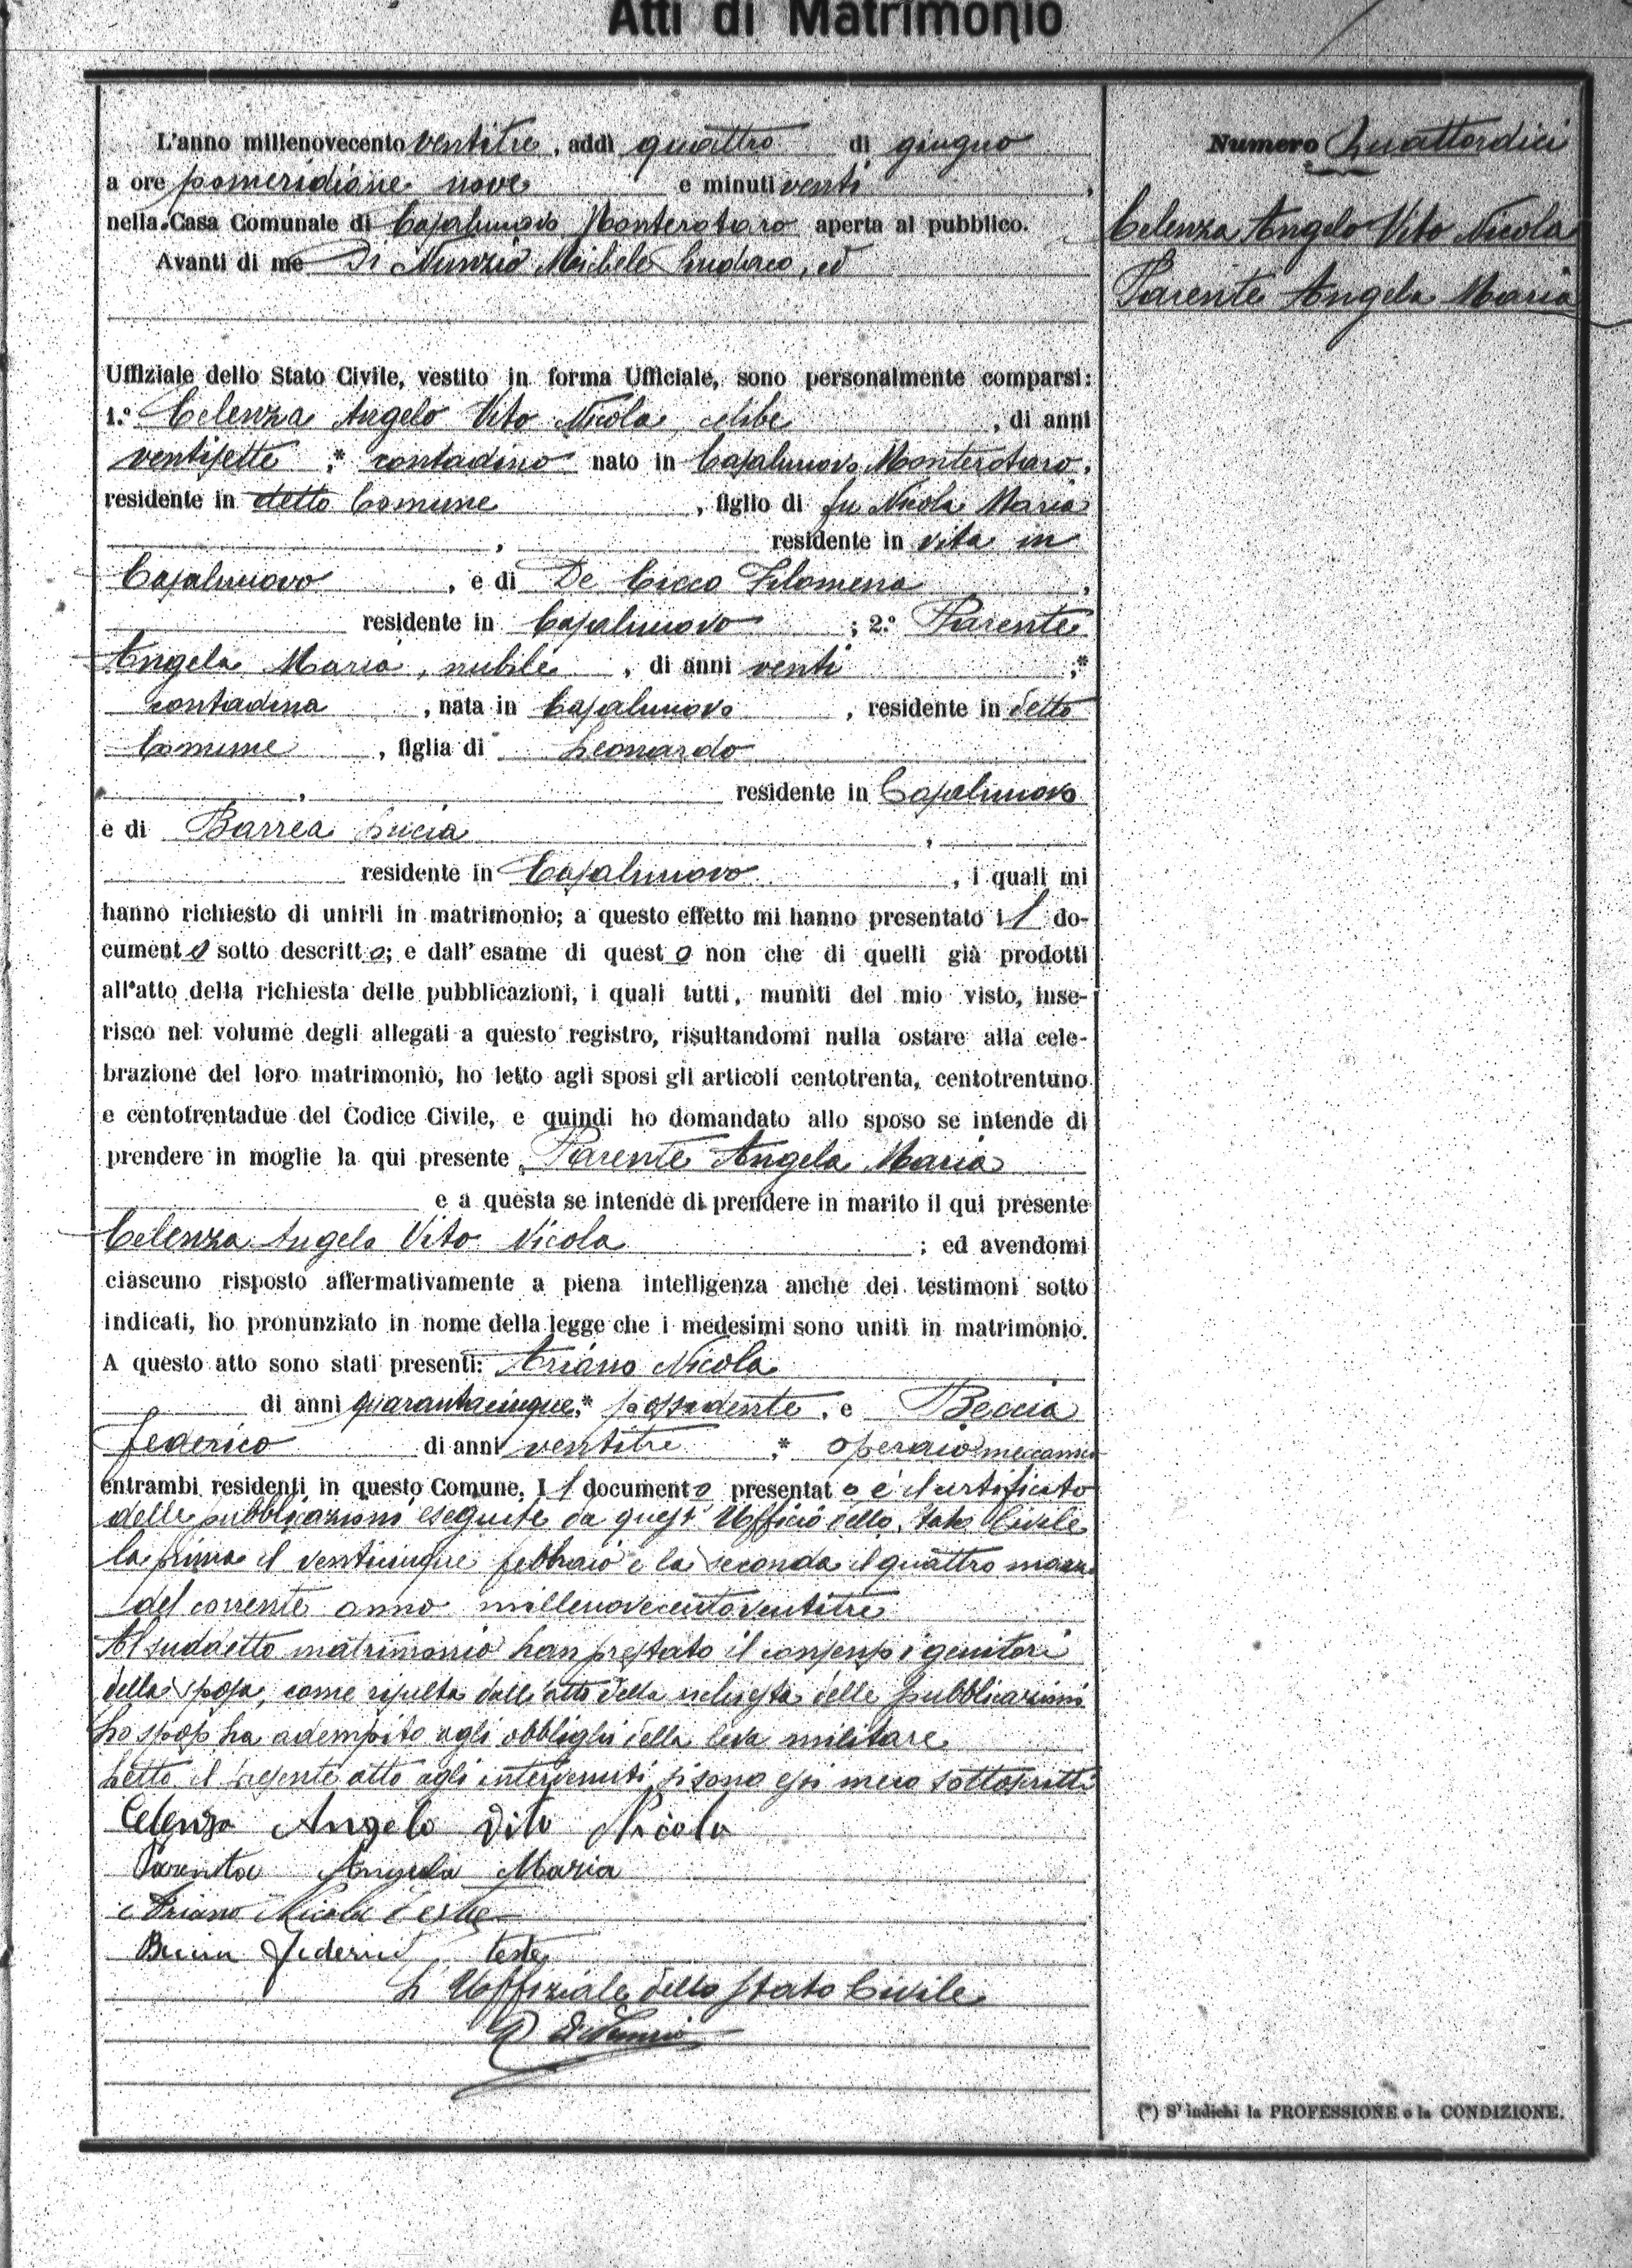 Atti di Matrimonio
L'anno millenovecento ventitre, addì quattro di giugno
a ore pomeridiane nove e minuti venti,
nella Casa Comunale di Casalnuovo Monterotaro aperta al pubblico.
Avanti di me Di Nunzio Michele Sindaco, ed
Uffiziale dello Stato Civile, vestito in forma Ufficiale, sono personalmente comparsi:
1.° Celenza Angelo Vito Nicola, celibe, di anni
ventisette,* contadino nato in Casalnuovo Monterotaro,
residente in detto Comune, figlio di fu Nicola Maria
, residente in vita in
Casalnuovo, e di De Cicco Filomena,
residente in Casalnuovo; 2.° Parente
Angela Maria, nubile, di anni venti ;*
contadina, nata in Casalnuovo, residente in detto
Comune, figlia di Leonardo
, residente in Casalnuovo
e di Barrea Lucia,
residente in Casalnuovo, i quali mi
hanno richiesto di unirli in matrimonio; a questo effetto mi hanno presentato il do-
cumento sotto descritto; e dall'esame di questo non che di quelli già prodotti
all'atto della richiesta delle pubblicazioni, i quali tutti, muniti del mio visto, inse-
risco nel volume degli allegati a questo registro, risultandomi nulla ostare alla cele-
brazione del loro matrimonio, ho letto agli sposi gli articoli centotrenta, centotrentuno
e centotrentadue del Codice Civile, e quindi ho domandato allo sposo se intende di
prendere in moglie la qui presente Parente Angela Maria
e a questa se intende di prendere in marito il qui presente
Celenza Angelo Vito Nicola; ed avendomi
ciascuno risposto affermativamente a piena intelligenza anche dei testimoni sotto
indicati, ho pronunziato in nome della legge che i medesimi sono uniti in matrimonio.
A questo atto sono stati presenti: Ariano Nicola
di anni quarantacinque,* possidente, e Beccia
Federico di anni ventitre ;* operaio meccanico
entrambi residenti in questo Comune. Il documento presentato è il certificato
delle pubblicazioni eseguite da quest'Ufficio dello Stato Civile
la prima il venticinque febbraio e la seconda il quattro marzo
del corrente anno millenovecentoventitre
Al suddetto matrimonio han prestato il consenso i genitori
della sposa, come risulta dall'atto della richiesta delle pubblicazioni
Lo sposo ha adempito agli obblighi della leva militare
Letto il presente atto agli intervenuti, si sono essi meco sottoscritti
Celenza Angelo Vito Nicola
Parente Angela Maria
Ariano Nicola teste
Beccia Federico teste
L'Uffiziale dello Stato Civile
Di Nunzio
Numero Quattordici
Celenza Angelo Vito Nicola
Parente Angela Maria
(*) S'indichi la PROFESSIONE o la CONDIZIONE.